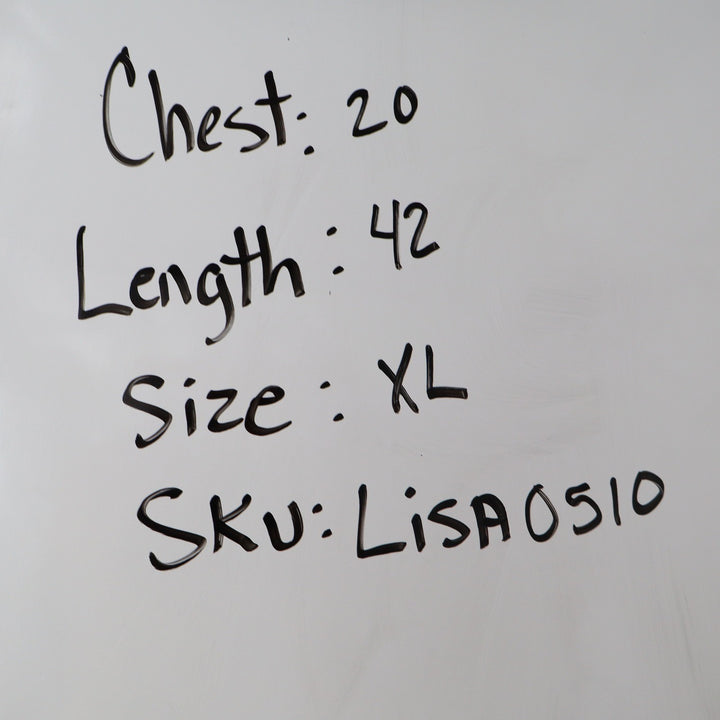 Chest: 20
Length: 42
Size: XL
SKU: LiSA0510